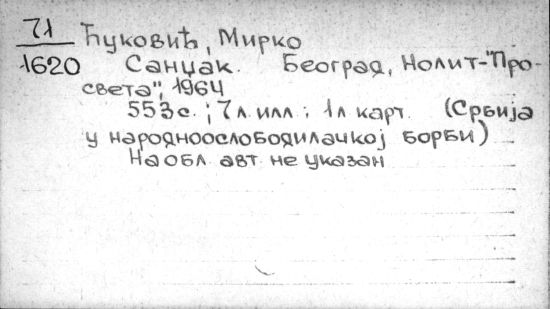 71
1620
Ћуковић, Мирко
Санџак. Београд, Нолит-"Про-
света", 1964
553 с.; 7 л. илл.; 1 л карт. (Србија
у народноослободилачкој борби)
На обл. авт. не указан